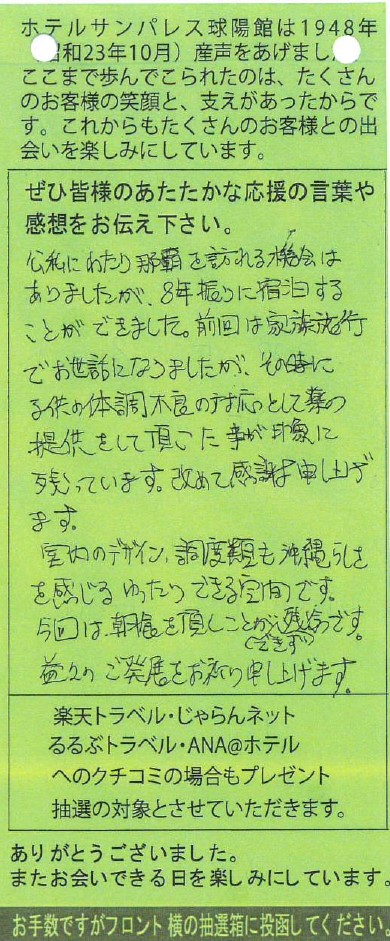 ホテルサンパレス球陽館は1948年
昭和23年10月）産声をあげまし
ここまで歩んでこられたのは、たくさん
のお客様の笑顔と、支えがあったからで
す。これからもたくさんのお客様との出
会いを楽しみにしています。
ぜひ皆様のあたたかな応援の言葉や
感想をお伝え下さい。
公私にわたり那覇を訪れる機会は
ありましたが、8年振りに宿泊する
ことができました。前回は家族旅行
でお世話になりましたが、その時に
子供の体調不良の対応として薬の
提供をして頂いた事が印象に
残っています。改めて感謝申し上げ
ます。
室内のデザイン、調度類も沖縄らしさ
を感じるゆったりできる空間です。
今回は、朝食を頂くことが残念です。
（できず）
益々のご発展をお祈り申し上げます。
楽天トラベル・じゃらんネット
るるぶトラベル・ANA@ホテル
へのクチコミの場合もプレゼント
抽選の対象とさせていただきます。
ありがとうございました。
またお会いできる日を楽しみにしています。
お手数ですがフロント横の抽選箱に投函してください。